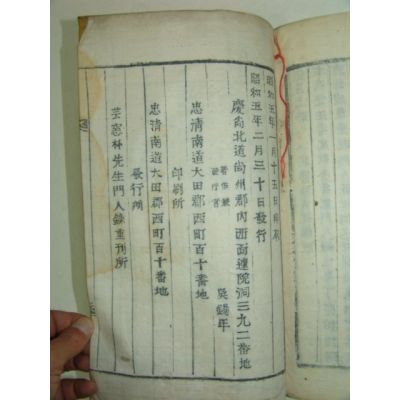 昭和五年一月十五日印刷
昭和五年二月三十日發行
慶尙北道尙州郡內西面蓮院洞三九二番地
發行者 吳錫年
忠清南道大田郡西町百十番地
印刷所
忠清南道大田郡西町百十番地
發行所
芸窩林先生門人錄重刊所